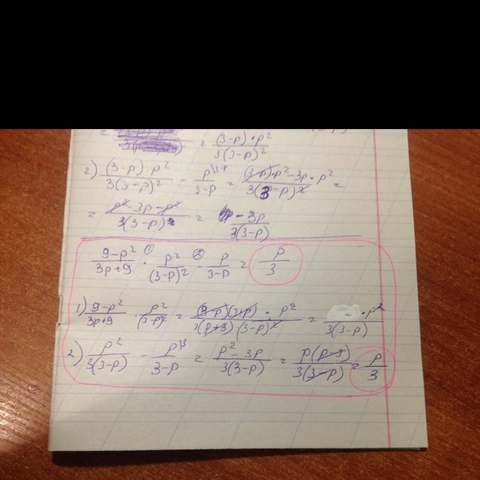 = (3-p)·p² / 3(3-p)²
2) (3-p)·p² / 3(3-p)² - p / 3-p = (3-p)·p²-3p·p² / 3(3-p)² =
= p²-3p-p² / 3(3-p)² = -3p / 3(3-p)
9-p² / 3p+9 · p² / (3-p)² - p / 3-p = -p / 3
1) 9-p² / 3p+9 · p² / (3-p)² = (3-p)(3+p)·p² / 3(p+3)(3-p)² = ·p² / 3(3-p)
2) p² / 3(3-p) - p / 3-p = p²-3p / 3(3-p) = p(p-3) / 3(3-p) = p / 3